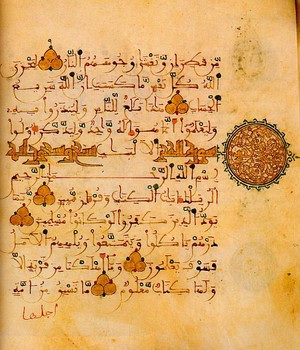 من قطران وتغشى وجوههم النار ليجزي
الله كل نفس ما كسبت إن الله سريع
الحساب هذا بلغ للناس ولينذروا به
وليعلموا أنما هو إله واحد وليذكر أولوا
سورة الحجر الالباب
بسم الله الرحمن الرحيم
الر تلك ايت الكتب وقران مبين ربما
يود الذين كفروا لو كانوا مسلمين
ذرهم ياكلوا ويتمتعوا ويلههم الامل
فسوف يعلمون وما اهلكنا من قرية الا
ولها كتاب معلوم ما تسبق من امة
اجلها